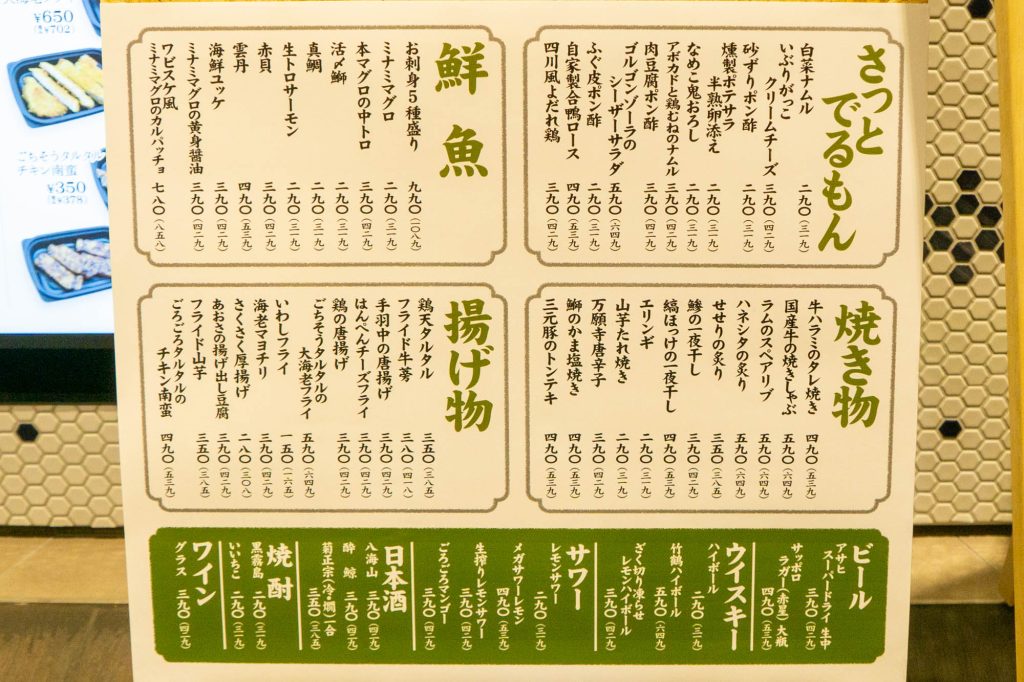 ¥650
(¥702)
ごちそうタルタル
チキン南蛮
¥350
(¥378)
さっと
でるもん
白菜ナムル 二九〇(三一九)
いぶりがっこ
クリームチーズ 三九〇(四二九)
砂ずりポン酢 二九〇(三一九)
燻製ポテサラ
半熟卵添え 二九〇(三一九)
なめこ鬼おろし 二九〇(三一九)
アボカドと鶏むねのナムル 三九〇(四二九)
肉豆腐ポン酢 三九〇(四二九)
ゴルゴンゾーラの
シーザーサラダ 五九〇(六四九)
ふぐ皮ポン酢 二九〇(三一九)
自家製合鴨ロース 四九〇(五三九)
四川風よだれ鶏 三九〇(四二九)
鮮魚
お刺身5種盛り 九九〇(一〇八九)
ミナミマグロ 二九〇(三一九)
本マグロの中トロ 三九〇(四二九)
活〆鰤 二九〇(三一九)
真鯛 二九〇(三一九)
生トロサーモン 二九〇(三一九)
赤貝 三九〇(四二九)
雲丹 四九〇(五三九)
海鮮ユッケ 三九〇(四二九)
ミナミマグロの黄身醤油 三九〇(四二九)
ワビスケ風
ミナミマグロのカルパッチョ 七八〇(八五八)
焼き物
牛ハラミのタレ焼き 四九〇(五三九)
国産牛の焼きしゃぶ 五九〇(六四九)
ラムのスペアリブ 五九〇(六四九)
ハネシタの炙り 五九〇(六四九)
せせりの炙り 三九〇(四二九)
鯵の一夜干し 三九〇(四二九)
縞ほっけの一夜干し 四九〇(五三九)
エリンギ 二九〇(三一九)
山芋たれ焼き 二九〇(三一九)
万願寺唐辛子 三九〇(四二九)
鰤のかま塩焼き 四九〇(五三九)
三元豚のトンテキ 四九〇(五三九)
揚げ物
鶏天タルタル 三五〇(三八五)
フライド牛蒡 三八〇(四一八)
手羽中の唐揚げ 三九〇(四二九)
はんぺんチーズフライ 三九〇(四二九)
鶏の唐揚げ 三九〇(四二九)
ごちそうタルタルの
大海老フライ 五九〇(六四九)
いわしフライ 一五〇(一六五)
海老マヨチリ 三九〇(四二九)
さくさく厚揚げ 二八〇(三〇八)
あおさの揚げ出し豆腐 三九〇(四二九)
フライド山芋 三五〇(三八五)
ごろごろタルタルの
チキン南蛮 四九〇(五三九)
ビール
アサヒ
スーパードライ 生中
三九〇(四二九)
サッポロ
ラガー(赤星) 大瓶
四九〇(五三九)
ウイスキー
ハイボール
二九〇(三一九)
竹鶴ハイボール
五九〇(六四九)
ざく切り凍らせ
レモンハイボール
三九〇(四二九)
サワー
レモンサワー
二九〇(三一九)
メガサワーレモン
四九〇(五三九)
生搾りレモンサワー
三九〇(四二九)
ごろごろマンゴー
三九〇(四二九)
日本酒
八海山 三九〇(四二九)
酔鯨 三九〇(四二九)
菊正宗(冷・燗)一合
三五〇(三八五)
焼酎
黒霧島 二九〇(三一九)
いいちこ 二九〇(三一九)
ワイン
グラス 三九〇(四二九)